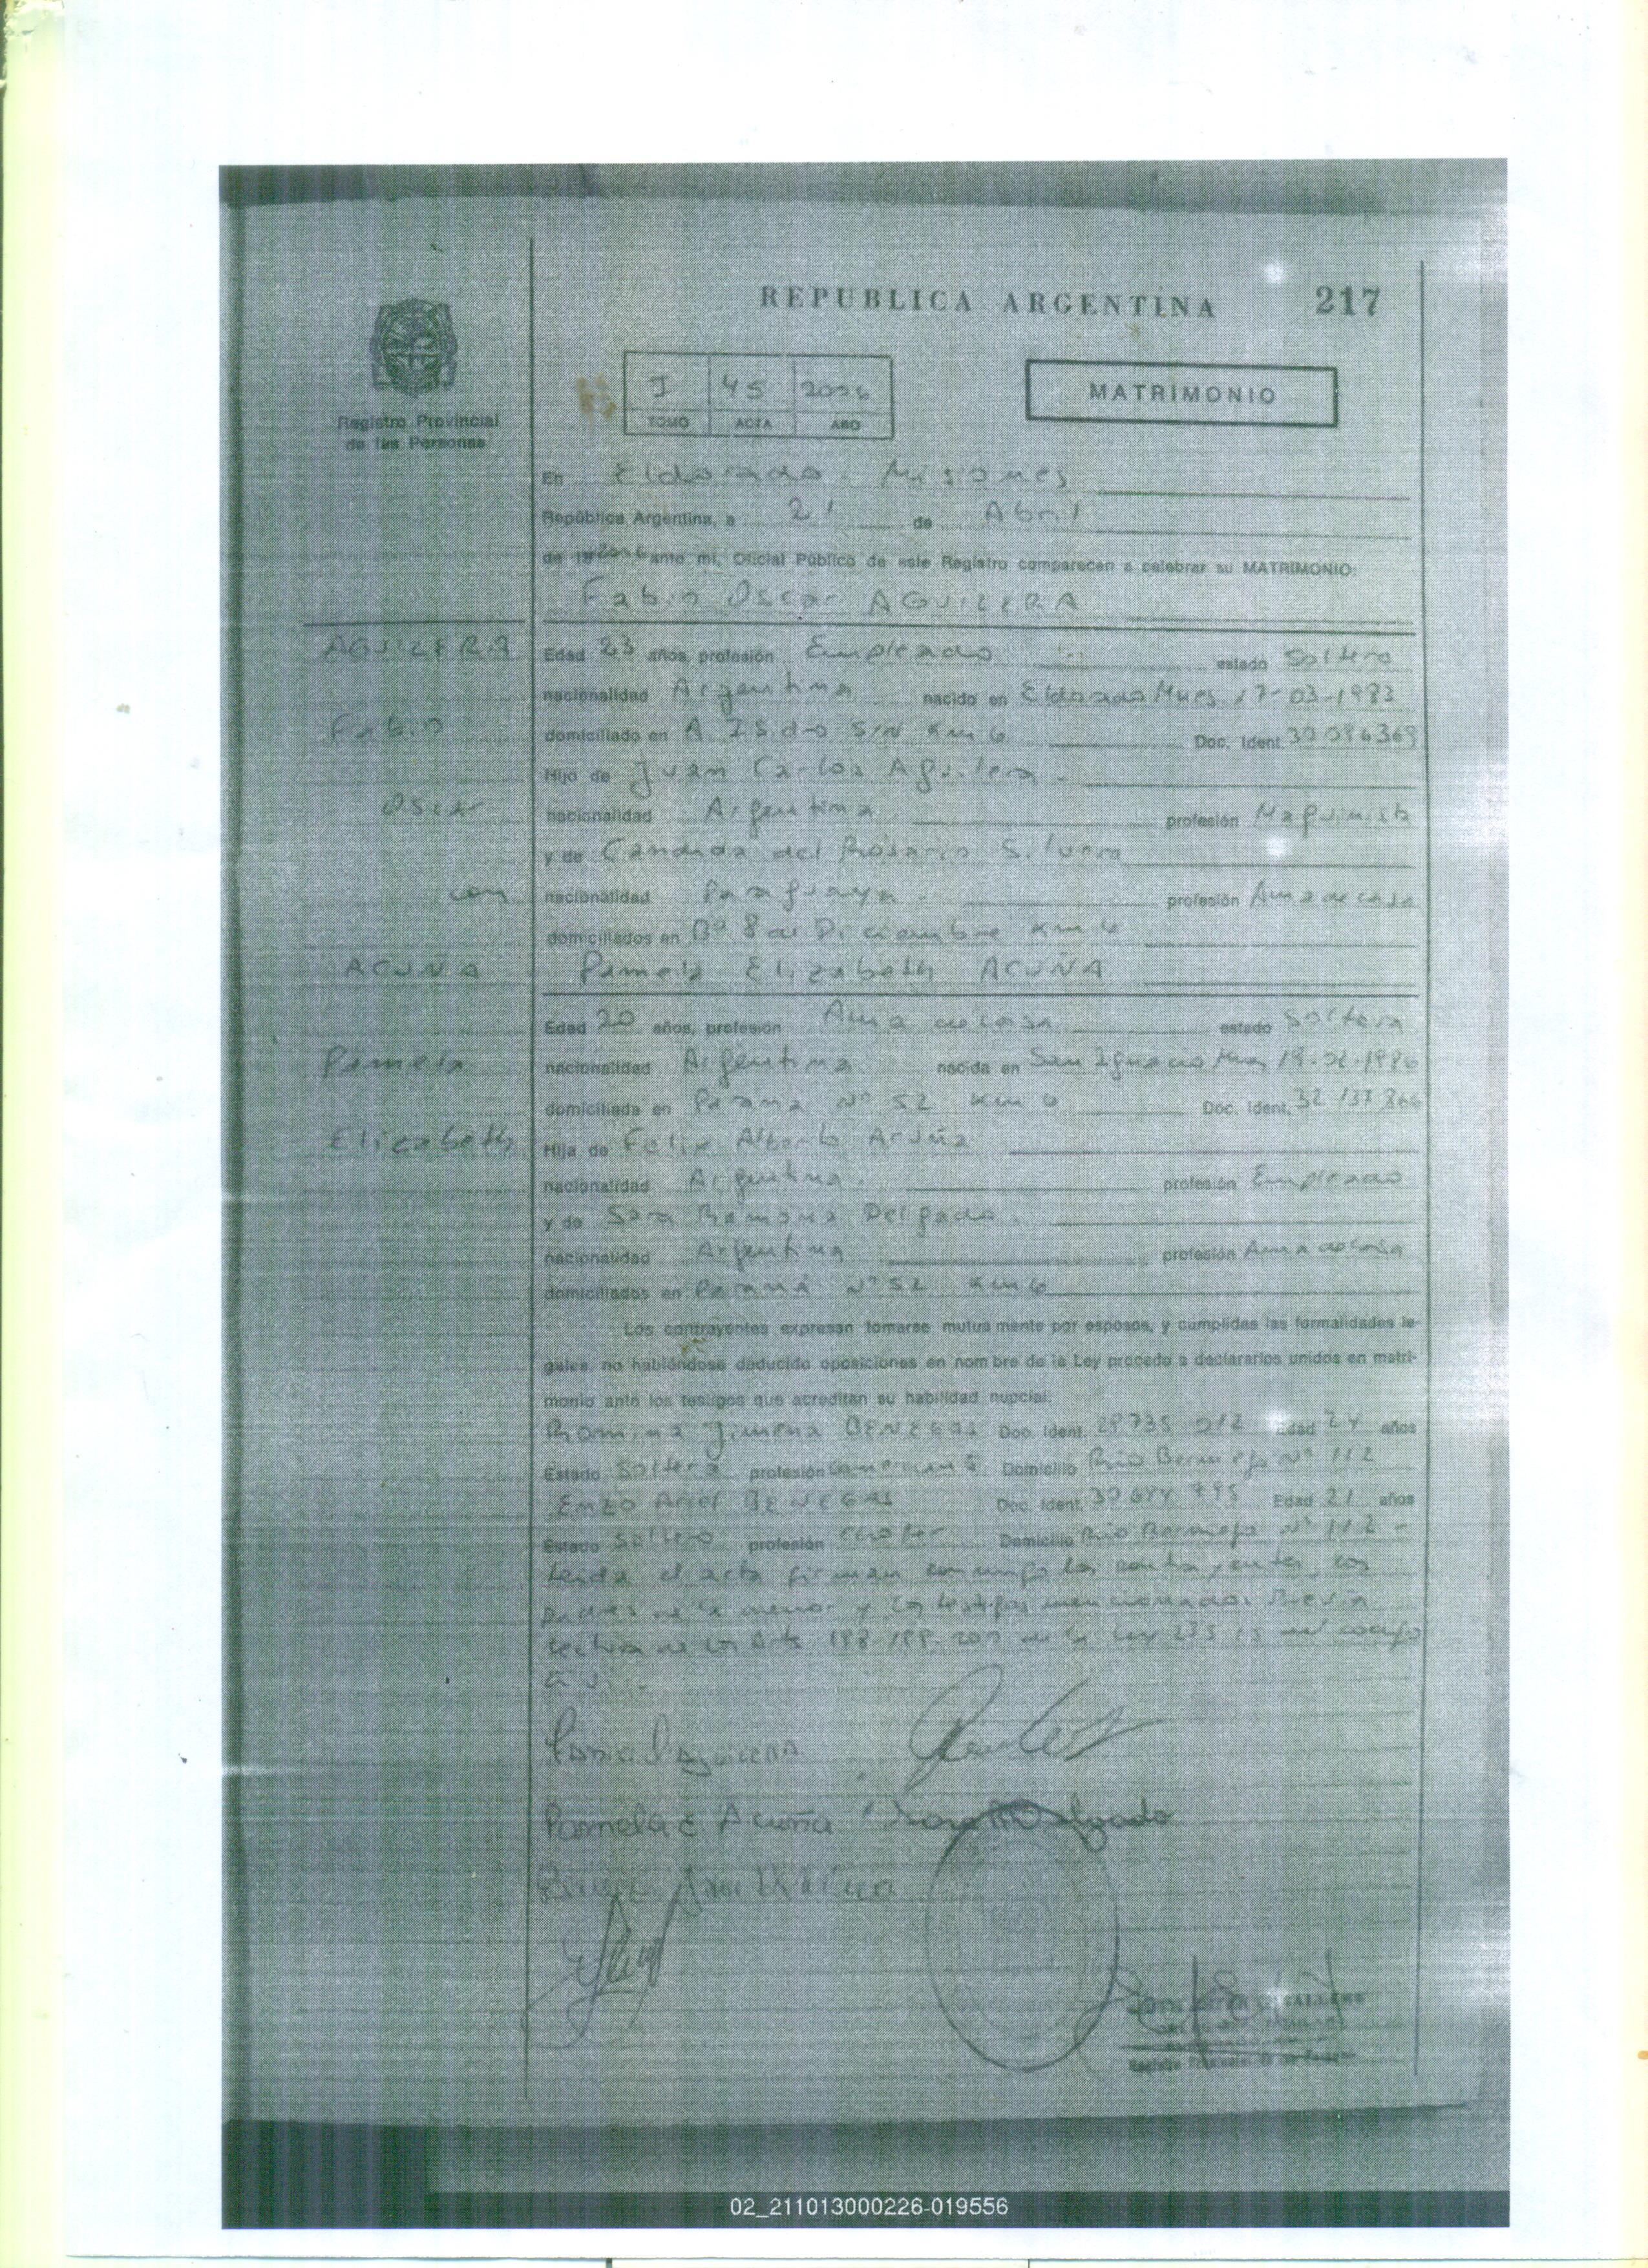 REPUBLICA ARGENTINA 217
Registro Provincial
de las Personas
I 45 2006
TOMO ACTA AÑO
MATRIMONIO
En Eldorado - Misiones
República Argentina, a 21 de Abril
de 19 2006 ante mi, Oficial Público de este Registro comparecen a celebrar su MATRIMONIO:
Fabio Oscar AGUILERA
AGUILERA
Fabio
Oscar
con
ACUÑA
Pamela
Elizabeth
Edad 23 años, profesión Empleado estado Soltero
nacionalidad Argentina nacido en Eldorado Mnes. 17-03-1983
domiciliado en A Isidro S/N Km 6 Doc. Ident.
Hijo de Juan Carlos Aguilera
nacionalidad Argentina profesión Maquinista
y de Candida del Rosario Silvero
nacionalidad Paraguaya profesión Ama de casa
domiciliados en Bº 8 de Diciembre Km 6
Pamela Elizabeth ACUÑA
Edad 20 años, profesión Ama de casa estado Soltera
nacionalidad Argentina nacida en San Ignacio Mnes 19-02-1986
domiciliada en Paraná Nº 52 Km 6 Doc. Ident.
Hija de Felix Alberto Acuña
nacionalidad Argentina. profesión Empleado
y de Sara Ramona Delgado.
nacionalidad Argentina profesión Ama de casa
domiciliados en Paraná Nº 52 Km 6
Los contrayentes expresan tomarse mutuamente por esposos, y cumplidas las formalidades le-
gales, no habiéndose deducido oposiciones en nombre de la Ley procedo a declararlos unidos en matri-
monio ante los testigos que acreditan su habilidad nupcial:
Romina Jimena BENEGAS Doc. Ident. Edad 24 años
Estado Soltera profesión Comerciante Domicilio Rio Bermejo Nº 112
Enzo Ariel BENEGAS Doc. Ident. Edad 21 años
Estado Soltero profesión Chofer Domicilio Rio Bermejo Nº 112 -
Leida el acta firman conmigo los contrayentes, los
padres de la menor y los testigos mencionados. Previa
lectura de los Arts 198-199-200 de la Ley 23515 del codigo
Pamela E Acuña Sara R Delgado
02_211013000226-019556